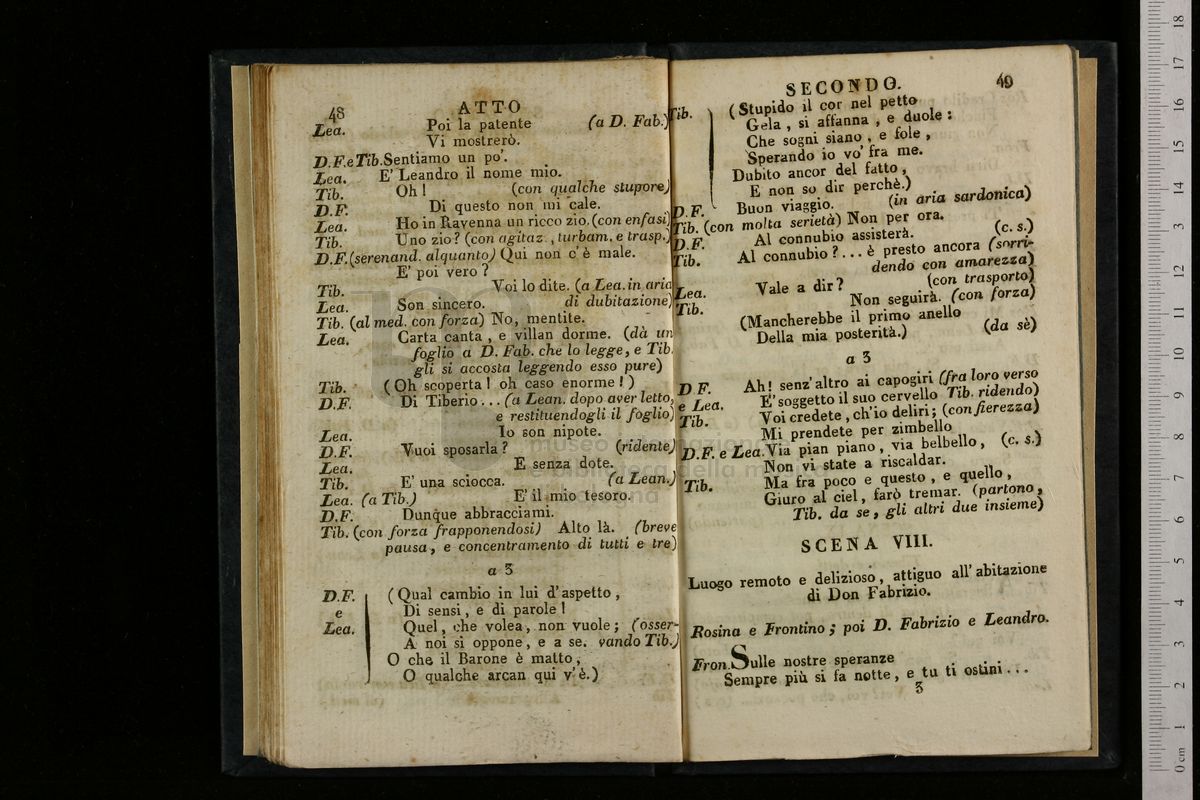 48
ATTO
Lea. Poi la patente (a D. Fab.)
Vi mostrerò.
D.F.e Tib. Sentiamo un po'.
Lea. E' Leandro il nome mio.
Tib. Oh! (con qualche stupore)
D.F. Di questo non mi cale.
Lea. Ho in Ravenna un ricco zio. (con enfasi)
Tib. Uno zio? (con agitaz., turbam. e trasp.)
D.F. (serenand. alquanto) Qui non c'è male.
E' poi vero?
Tib. Voi lo dite. (a Lea. in aria
Lea. Son sincero. di dubitazione)
Tib. (al med. con forza) No, mentite.
Lea. Carta canta, e villan dorme. (dà un
foglio a D. Fab. che lo legge, e Tib.
gli si accosta leggendo esso pure)
Tib. (Oh scoperta! oh caso enorme!)
D.F. Di Tiberio... (a Lean. dopo aver letto,
e restituendogli il foglio)
Lea. Io son nipote.
D.F. Vuoi sposarla? (ridente)
Lea. E senza dote.
Tib. E' una sciocca. (a Lean.)
Lea. (a Tib.) E' il mio tesoro.
D.F. Dunque abbracciami.
Tib. (con forza frapponendosi) Alto là. (breve
pausa, e concentramento di tutti e tre)
a 3
D.F. (Qual cambio in lui d'aspetto,
e Di sensi, e di parole!
Lea. Quel, che volea, non vuole; (osser-
A noi si oppone, e a se. vando Tib.)
O che il Barone è matto,
O qualche arcan qui v'è.)
SECONDO. 49
Tib. (Stupido il cor nel petto
Gela, si affanna, e duole:
Che sogni siano, e fole,
Sperando io vo' fra me.
Dubito ancor del fatto,
E non so dir perchè.)
D.F. Buon viaggio. (in aria sardonica)
Tib. (con molta serietà) Non per ora.
D.F. Al connubio assisterà. (c. s.)
Tib. Al connubio?... è presto ancora (sorri-
dendo con amarezza)
Lea. Vale a dir? (con trasporto)
Tib. Non seguirà. (con forza)
(Mancherebbe il primo anello
Della mia posterità.) (da sè)
a 3
D F. Ah! senz'altro ai capogiri (fra loro verso
e Lea. E' soggetto il suo cervello Tib. ridendo)
Tib. Voi credete, ch'io deliri; (con fierezza)
Mi prendete per zimbello
D.F. e Lea. Via pian piano, via belbello, (c. s.)
Non vi state a riscaldar.
Tib. Ma fra poco e questo, e quello,
Giuro al ciel, farò tremar. (partono,
Tib. da se, gli altri due insieme)
SCENA VIII.
Luogo remoto e delizioso, attiguo all'abitazione
di Don Fabrizio.
Rosina e Frontino; poi D. Fabrizio e Leandro.
Fron. Sulle nostre speranze
Sempre più si fa notte, e tu ti ostini...
3
0 cm 1 2 3 4 5 6 7 8 9 10 11 12 13 14 15 16 17 18